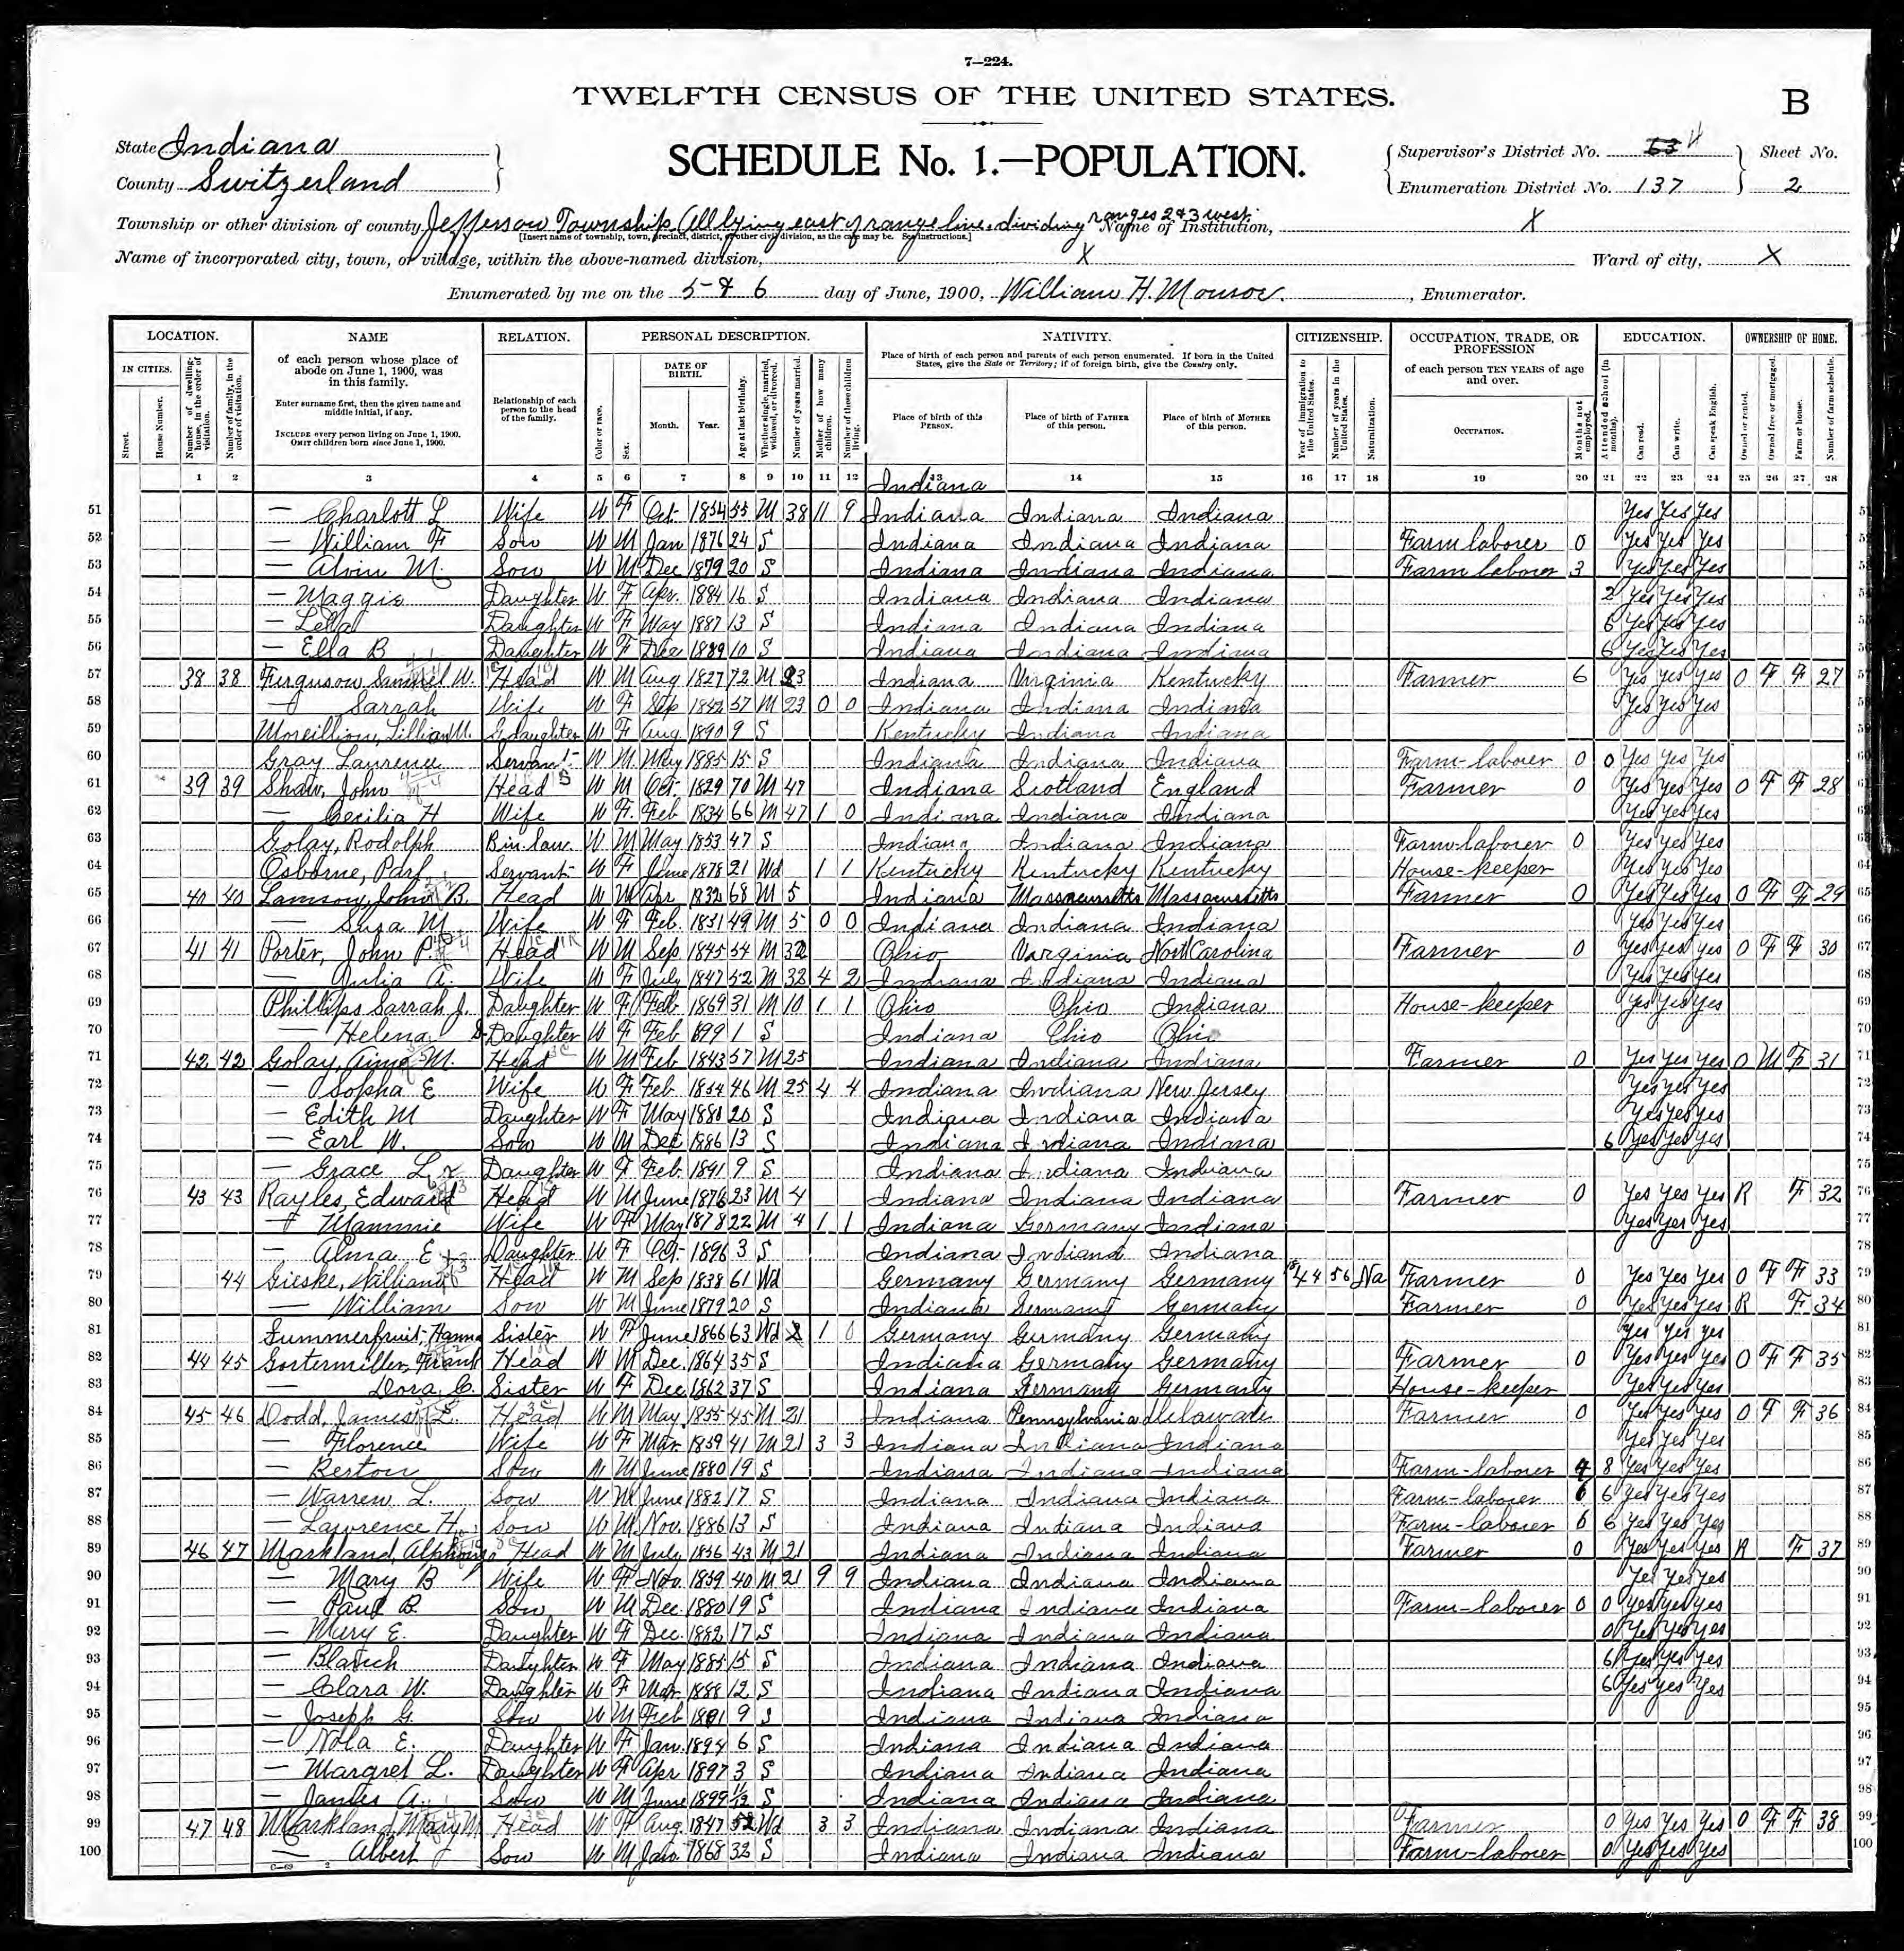 7—224.
TWELFTH CENSUS OF THE UNITED STATES.
B
State Indiana
County Switzerland
SCHEDULE No. 1.—POPULATION.
Supervisor's District No. 4
Enumeration District No. 137
Sheet No. 2
Township or other division of county Jefferson Township (All lying east of range line dividing ranges 2 & 3 west. Name of Institution, X
[Insert name of township, town, precinct, district, or other civil division, as the case may be. See instructions.]
Name of incorporated city, town, or village, within the above-named division, X Ward of city, X
Enumerated by me on the 5 & 6 day of June, 1900, William H. Monroe. , Enumerator.
LOCATION. NAME RELATION. PERSONAL DESCRIPTION. NATIVITY. CITIZENSHIP. OCCUPATION, TRADE, OR PROFESSION EDUCATION. OWNERSHIP OF HOME.
IN CITIES. Street. House Number. Number of dwelling-house, in the order of visitation. Number of family, in the order of visitation.
of each person whose place of abode on June 1, 1900, was in this family.
Enter surname first, then the given name and middle initial, if any.
INCLUDE every person living on June 1, 1900.
OMIT children born since June 1, 1900.
Relationship of each person to the head of the family.
Color or race. Sex. DATE OF BIRTH. Month. Year. Age at last birthday. Whether single, married, widowed, or divorced. Number of years married. Mother of how many children. Number of these children living.
Place of birth of each person and parents of each person enumerated. If born in the United States, give the State or Territory; if of foreign birth, give the Country only.
Place of birth of this PERSON. Place of birth of FATHER of this person. Place of birth of MOTHER of this person.
Year of immigration to the United States. Number of years in the United States. Naturalization.
of each person TEN YEARS of age and over.
OCCUPATION. Months not employed.
Attended school (in months). Can read. Can write. Can speak English.
Owned or rented. Owned free or mortgaged. Farm or house. Number of farm schedule.
1 2 3 4 5 6 7 8 9 10 11 12 13 14 15 16 17 18 19 20 21 22 23 24 25 26 27 28
Indiana
51 — Charlott L Wife W F Oct 1854 55 M 38 11 9 Indiana Indiana Indiana Yes Yes Yes
52 — William F Son W M Jan 1876 24 S Indiana Indiana Indiana Farm laborer 0 Yes Yes Yes
53 — Alvin M. Son W M Dec 1879 20 S Indiana Indiana Indiana Farm laborer 3 Yes Yes Yes
54 — Maggie Daughter W F Apr. 1884 16 S Indiana Indiana Indiana 2 Yes Yes Yes
55 — Lella Daughter W F May 1887 13 S Indiana Indiana Indiana 6 Yes Yes Yes
56 — Ella B Daughter W F Dec 1889 10 S Indiana Indiana Indiana 6 Yes Yes Yes
57 38 38 Ferguson W. Head W M Aug 1827 72 M 23 Indiana Virginia Kentucky Farmer 6 Yes Yes Yes O F F 27
58 — Sarrah Wife W F Sep 1842 57 M 23 0 0 Indiana Indiana Indiana Yes Yes Yes
59 Moreillion, Lillian M. G daughter W F Aug. 1890 9 S Kentucky Indiana Indiana
60 Gray Laurence Servant W M. May 1885 15 S Indiana Indiana Indiana Farm-laborer 0 0 Yes Yes Yes
61 39 39 Shaw, John Head W M Oct. 1829 70 M 47 Indiana Scotland England Farmer 0 Yes Yes Yes O F F 28
62 — Cecilia H Wife W F. Feb 1834 66 M 47 1 0 Indiana Indiana Indiana Yes Yes Yes
63 Golay, Rodolph B in law W M May 1853 47 S Indiana Indiana Indiana Farm-laborer 0 Yes Yes Yes
64 Osborne, Servant W F June 1878 21 Wd 1 1 Kentucky Kentucky Kentucky House-keeper Yes Yes Yes
65 40 40 Lamson, John B. Head W M Apr 1832 68 M 5 Indiana Massacusetts Massacusetts Farmer 0 Yes Yes Yes O F F 29
66 — M Wife W F Feb. 1851 49 M 5 0 0 Indiana Indiana Indiana Yes Yes Yes
67 41 41 Porter, John P. Head W M Sep. 1845 54 M 32 Ohio Varginia North Carolina Farmer 0 Yes Yes Yes O F F 30
68 — Julia A. Wife W F July 1847 52 M 32 4 2 Indiana Indiana Indiana Yes Yes Yes
69 Phillips Sarrah J. Daughter W F Feb 1869 31 M 10 1 1 Ohio Ohio Indiana House-keeper Yes Yes Yes
70 — Helena G-Daughter W F Feb 1899 1 S Indiana Ohio Ohio
71 42 42 Golay, Aime M. Head W M Feb 1843 57 M 25 Indiana Indiana Indiana Farmer 0 Yes Yes Yes O M F 31
72 — Sopha E Wife W F Feb 1854 46 M 25 4 4 Indiana Indiana New Jersey Yes Yes Yes
73 — Edith M Daughter W F May 1880 20 S Indiana Indiana Indiana Yes Yes Yes
74 — Earl W. Son W M Dec 1886 13 S Indiana Indiana Indiana 6 Yes Yes Yes
75 — Grace L. Daughter W F Feb. 1891 9 S Indiana Indiana Indiana
76 43 43 Rayles, Edward Head W M June 1876 23 M 4 Indiana Indiana Indiana Farmer 0 Yes Yes Yes R F 32
77 — Mammie Wife W F May 1878 22 M 4 1 1 Indiana Germany Indiana Yes Yes Yes
78 — Alma E Daughter W F Oct. 1896 3 S Indiana Indiana Indiana
79 44 Gieske, William Head W M Sep 1838 61 Wd Germany Germany Germany 1844 56 Na Farmer 0 Yes Yes Yes O F F 33
80 — William Son W M June 1879 20 S Indiana Germany Germany Farmer 0 Yes Yes Yes R F 34
81 Summerfruit, Hanna Sister W F June 1866 63 Wd 1 0 Germany Germany Germany Yes Yes Yes
82 44 45 Gostermiller, Frank Head W M Dec. 1864 35 S Indiana Germany Germany Farmer 0 Yes Yes Yes O F F 35
83 — Dora C. Sister W F Dec 1862 37 S Indiana Germany Germany House-keeper Yes Yes Yes
84 45 46 Dodd, James E. Head W M May 1855 45 M 21 Indiana Pennsylvania Delaware Farmer 0 Yes Yes Yes O F F 36
85 — Florence Wife W F Mar. 1859 41 M 21 3 3 Indiana Indiana Indiana Yes Yes Yes
86 — Reston Son W M June 1880 19 S Indiana Indiana Indiana Farm-laborer 4 8 Yes Yes Yes
87 — Warren L. Son W M June 1882 17 S Indiana Indiana Indiana Farm-laborer 6 6 Yes Yes Yes
88 — Lawrence H. Son W M. Nov. 1886 13 S Indiana Indiana Indiana Farm-laborer 6 6 Yes Yes Yes
89 46 47 Markland, Alphonso Head W M July 1856 43 M 21 Indiana Indiana Indiana Farmer 0 Yes Yes Yes R F 37
90 — Mary B Wife W F Nov. 1859 40 M 21 9 9 Indiana Indiana Indiana Yes Yes Yes
91 — Paul B. Son W M Dec. 1880 19 S Indiana Indiana Indiana Farm-laborer 0 0 Yes Yes Yes
92 — Mery E. Daughter W F Dec. 1882 17 S Indiana Indiana Indiana 0 Yes Yes Yes
93 — Blanch Daughter W F May 1885 15 S Indiana Indiana Indiana 6 Yes Yes Yes
94 — Clara W. Daughter W F Mar 1888 12 S Indiana Indiana Indiana 6 Yes Yes Yes
95 — Joseph G. Son W M Feb 1891 9 S Indiana Indiana Indiana
96 — Nola E. Daughter W F Jan. 1894 6 S Indiana Indiana Indiana
97 — Margret L. Daughter W F Apr 1897 3 S Indiana Indiana Indiana
98 — James A. Son W M June 1899 11/12 S Indiana Indiana Indiana
99 47 48 Markland, Mary M Head W F Aug. 1847 52 Wd 3 3 Indiana Indiana Indiana Farmer 0 Yes Yes Yes O F F 38
100 — Albert J Son W M Jan. 1868 32 S Indiana Indiana Indiana Farm-laborer 0 Yes Yes Yes
C—69 2